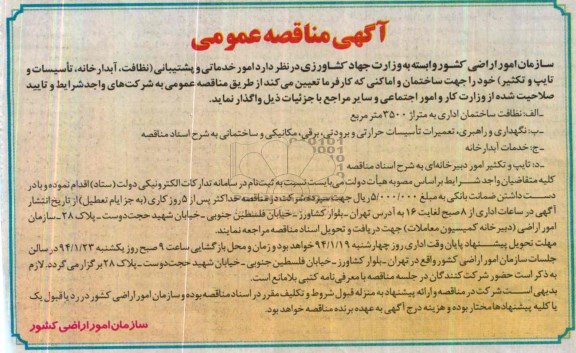 آگهی مناقصه عمومی
سازمان امور اراضی کشور وابسته به وزارت جهاد کشاورزی در نظر دارد امور خدماتی و پشتیبانی (نظافت، آبدارخانه، تأسیسات و
تایپ و تکثیر) خود را جهت ساختمان و اماکنی که کارفرما تعیین می‌کند از طریق مناقصه عمومی به شرکت‌های واجد شرایط و تایید
صلاحیت شده از وزارت کار و امور اجتماعی و سایر مراجع با جزئیات ذیل واگذار نماید.
ـ الف: نظافت ساختمان اداری به متراژ ۳۵۰۰ متر مربع
ـ ب: نگهداری و راهبری، تعمیرات تأسیسات حرارتی و برودتی، برقی، مکانیکی و ساختمانی به شرح اسناد مناقصه
ـ ج: خدمات آبدارخانه
ـ د: تایپ و تکثیر امور دبیرخانه‌ای به شرح اسناد مناقصه
کلیه متقاضیان واجد شرایط بر اساس مصوبه هیأت دولت می‌بایست نسبت به ثبت‌نام در سامانه تدارکات الکترونیکی دولت (ستاد) اقدام نموده و با در
دست داشتن ضمانت بانکی به مبلغ ۵/۰۰۰/۰۰۰ ریال جهت سپرده شرکت در مناقصه حداکثر پس از ۵ روز کاری (به جز ایام تعطیل) از تاریخ انتشار
آگهی در ساعات اداری از ۸ صبح لغایت ۱۶ به آدرس تهران ـ بلوار کشاورز ـ خیابان فلسطین جنوبی ـ خیابان شهید حجت‌دوست ـ پلاک ۲۸ ـ سازمان
امور اراضی (دبیرخانه کمیسیون معاملات) جهت دریافت و تحویل اسناد مناقصه مراجعه نمایند.
مهلت تحویل پیشنهاد پایان وقت اداری روز چهارشنبه ۹۴/۱/۱۹ خواهد بود و زمان و محل بازگشایی ساعت ۹ صبح روز یکشنبه ۹۴/۱/۲۳ در سالن
جلسات سازمان امور اراضی کشور واقع در تهران ـ بلوار کشاورز ـ خیابان فلسطین جنوبی ـ خیابان شهید حجت‌دوست ـ پلاک ۲۸ برگزار می‌گردد. لازم
به ذکر است حضور شرکت کنندگان در جلسه مناقصه با معرفی‌نامه کتبی بلامانع است.
بدیهی است شرکت در مناقصه و ارائه پیشنهاد به منزله قبول شروط و تکلیف مقرر در اسناد مناقصه بوده و سازمان امور اراضی کشور در رد یا قبول یک
یا کلیه پیشنهادها مختار بوده و هزینه درج آگهی به عهده برنده مناقصه خواهد بود.
سازمان امور اراضی کشور